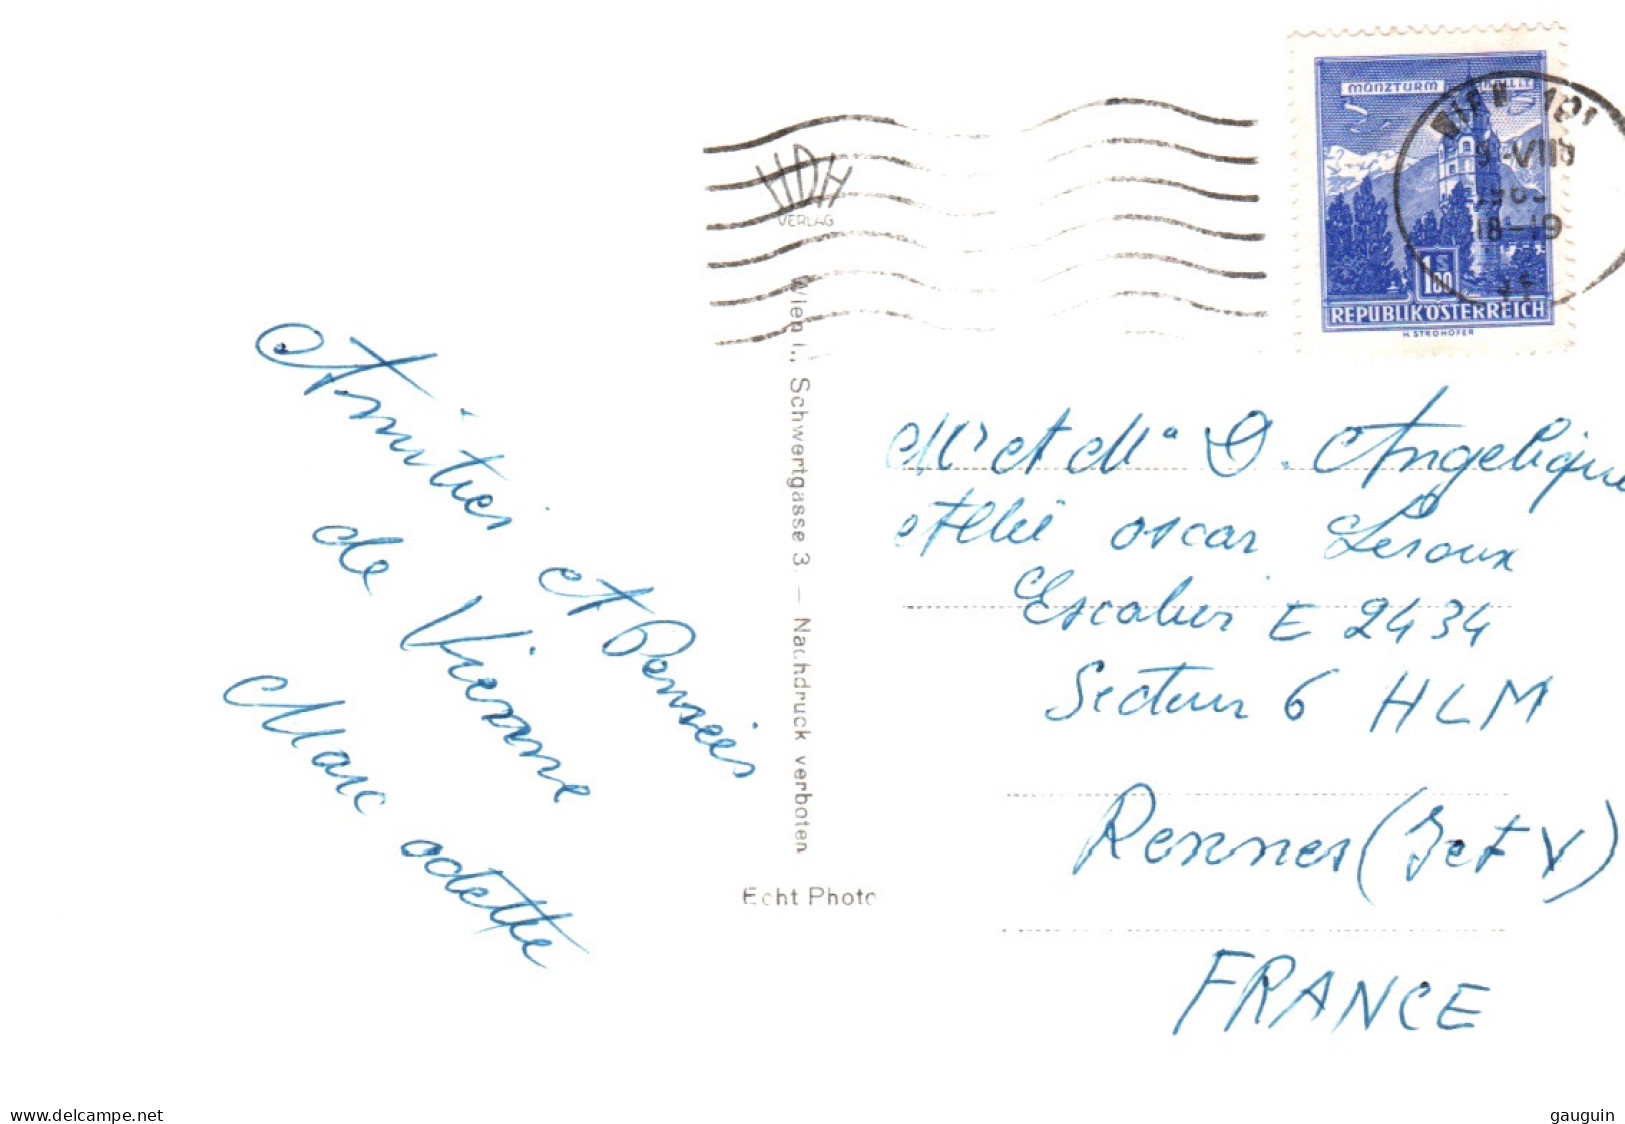 MÜNZTURM
WIEN 101
9.-VIII
18-19
1 S 80
REPUBLIK ÖSTERREICH
H. STROHOFER
HDH
VERLAG
Wien I., Schwertgasse 3. — Nachdruck verboten
Echt Photo
Amitiés et Pensées
de Vienne
Marc odette
Mr et Me D. Angelique
Allée oscar Leroux
Escalier E 2434
Secteur 6 HLM
Rennes (I et V)
FRANCE
www.delcampe.net
gauguin